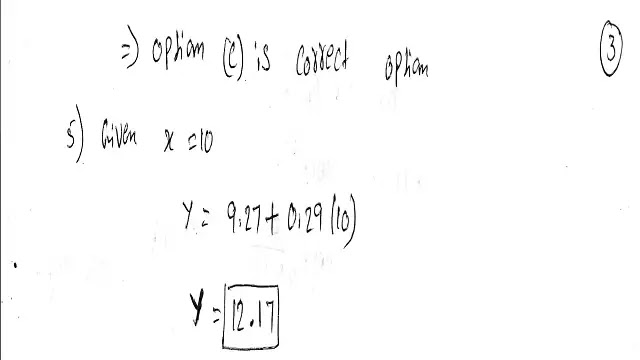 =) option (c) is correct option
3
5) Given x = 10
Y = 9.27 + 0.29 (10)
Y = 12.17